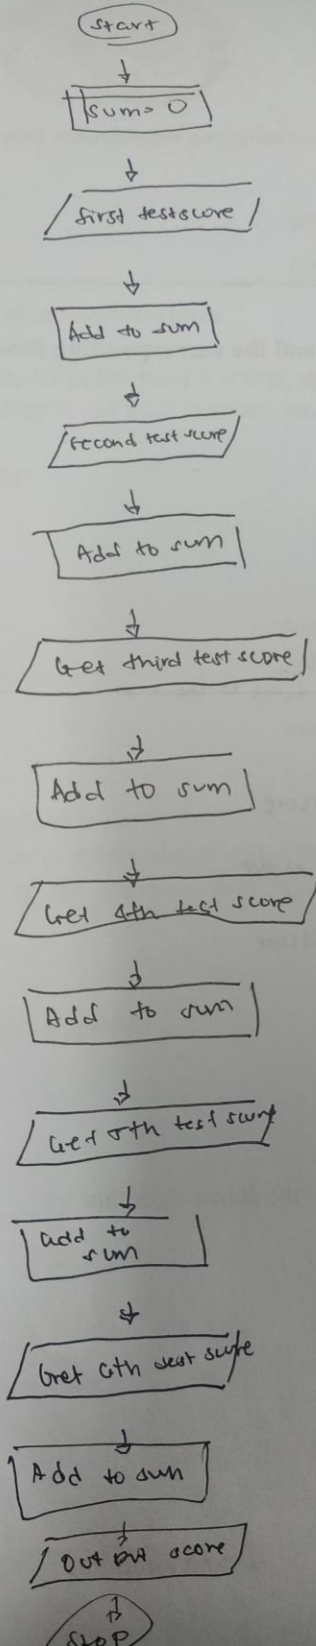 start
sum= 0
first testscore
Add to sum
second test score
Add to sum
Get third test score
Add to sum
Get 4th test score
Add to sum
Get 5th test score
add to
sum
Get 6th test score
Add to sum
Output score
STOP